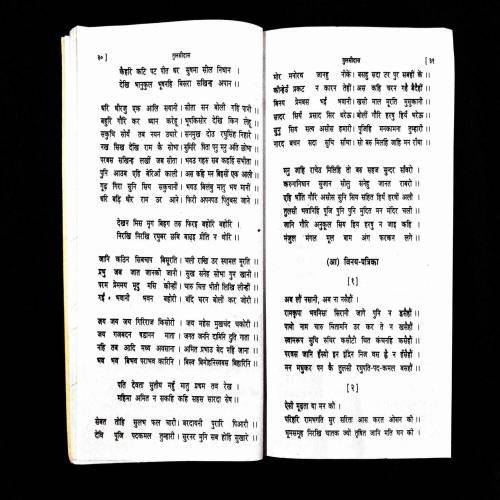 ३०] तुलसीदास
केहरि कटि पट पीत धर सुषमा सील निधान ।
देखि भानुकुल भूषनहि बिसरा सखिन्ह अपान ।।
धरि धीरजु एक आलि सयानी । सीता सन बोली गहि पानी ।।
बहुरि गौरि कर ध्यान करेहू । भूपकिसोर देखि किन लेहू ।।
सकुचि सीयँ तब नयन उघारे । सनमुख दोउ रघुसिंह निहारे ।।
नख सिख देखि राम कै सोभा । सुमिरि पिता पनु मनु अति छोभा ।।
परबस सखिन्ह लखी जब सीता । भयउ गहरु सब कहहिं सभीता ।।
पुनि आउब एहि बेरिआँ काली । अस कहि मन बिहसी एक आली ।।
गूढ़ गिरा सुनि सिय सकुचानी । भयउ बिलंबु मातु भय मानी ।।
धरि बड़ि धीर राम उर आने । फिरी अपनपउ पितुबस जाने ।।
देखन मिस मृग बिहग तरु फिरइ बहोरि बहोरि ।
निरखि निरखि रघुबर छबि बाढ़इ प्रीति न थोरि ।।
जानि कठिन सिवचाप बिसूरति । चली राखि उर स्यामल मूरति ।।
प्रभु जब जात जानकी जानी । सुख सनेह सोभा गुन खानी ।।
परम प्रेममय मृदु मसि कीन्ही । चारु चित्त भीतीं लिखि लीन्ही ।।
गई भवानी भवन बहोरी । बंदि चरन बोली कर जोरी ।।
जय जय जय गिरिराज किसोरी । जय महेस मुखचंद चकोरी ।।
जय गजबदन षडानन माता । जगत जननि दामिनि दुति गाता ।।
नहिं तव आदि मध्य अवसाना । अमित प्रभाउ बेद नहिं जाना ।।
भव भव बिभव पराभव कारिनि । बिस्व बिमोहनि स्वबस बिहारिनि ।।
पति देवता सुतीय महुँ मातु प्रथम तव रेख ।
महिमा अमित न सकहिं कहि सहस सारदा सेष ।।
सेवत तोहि सुलभ फल चारी । बरदायनी पुरारि पिआरी ।।
देबि पूजि पदकमल तुम्हारी । सुरनर मुनि सब होहिं सुखारे ।।
तुलसीदास [३१
मोर मनोरथ जानहु नीकें । बसहु सदा उर पुर सबही कें ।।
कीन्हेउँ प्रकट न कारन तेहीं । अस कहि चरन गहे बैदेहीं ।।
बिनय प्रेमबस भई भवानी । खसी माल मूरति मुसुकानी ।।
सादर सियँ प्रसाद सिर धरेऊ । बोली गौरि हरषु हियँ भरेऊ ।।
सुनु सिय सत्य असीस हमारी । पूजिहि मनकामना तुम्हारी ।।
नारद बचन सदा सुचि साँचा । सो बरु मिलिहि जाहिं मन राँचा ।।
मनु जाहिं राचेउ मिलिहि तो बरु सहज सुन्दर साँवरो ।
करुनानिधान सुजान सीलु सनेहु जानत रावरो ।।
एहि भाँति गौरि असीस सुनि सिय सहित हियँ हरषीं अली ।
तुलसी भवानिहि पूजि पुनि पुनि मुदित मन मंदिर चली ।।
जानि गौरि अनुकूल सिय हिय हरषु न जाइ कहि ।
मंजुल मंगल मूल बाम अंग फरकन लगे ।।
(आ) विनय-पत्रिका
[१]
अब लौं नसानी, अब ना नसैहौं ।
रामकृपा भवनिसा सिरानी जागे पुनि न डसैहौं ।।
पायो नाम चारु चिंतामनि उर कर ते न खसैहौं ।
स्यामरूप सुचि रुचिर कसौटी चित कंचनहिं कसैहौं ।।
परबस जानि हँस्यो इन इंद्रिन निज बस ह्वै न हँसैहौं ।
मन मधुकर पन कै तुलसी रघुपति-पद-कमल बसैहौं ।।
[२]
ऐसी मूढ़ता या मन की ।
परिहरि रामभगति सुर सरिता आस करत ओसन की ।।
धूमसमूह निरखि चातक ज्यों तृषित जानि मति घन की ।